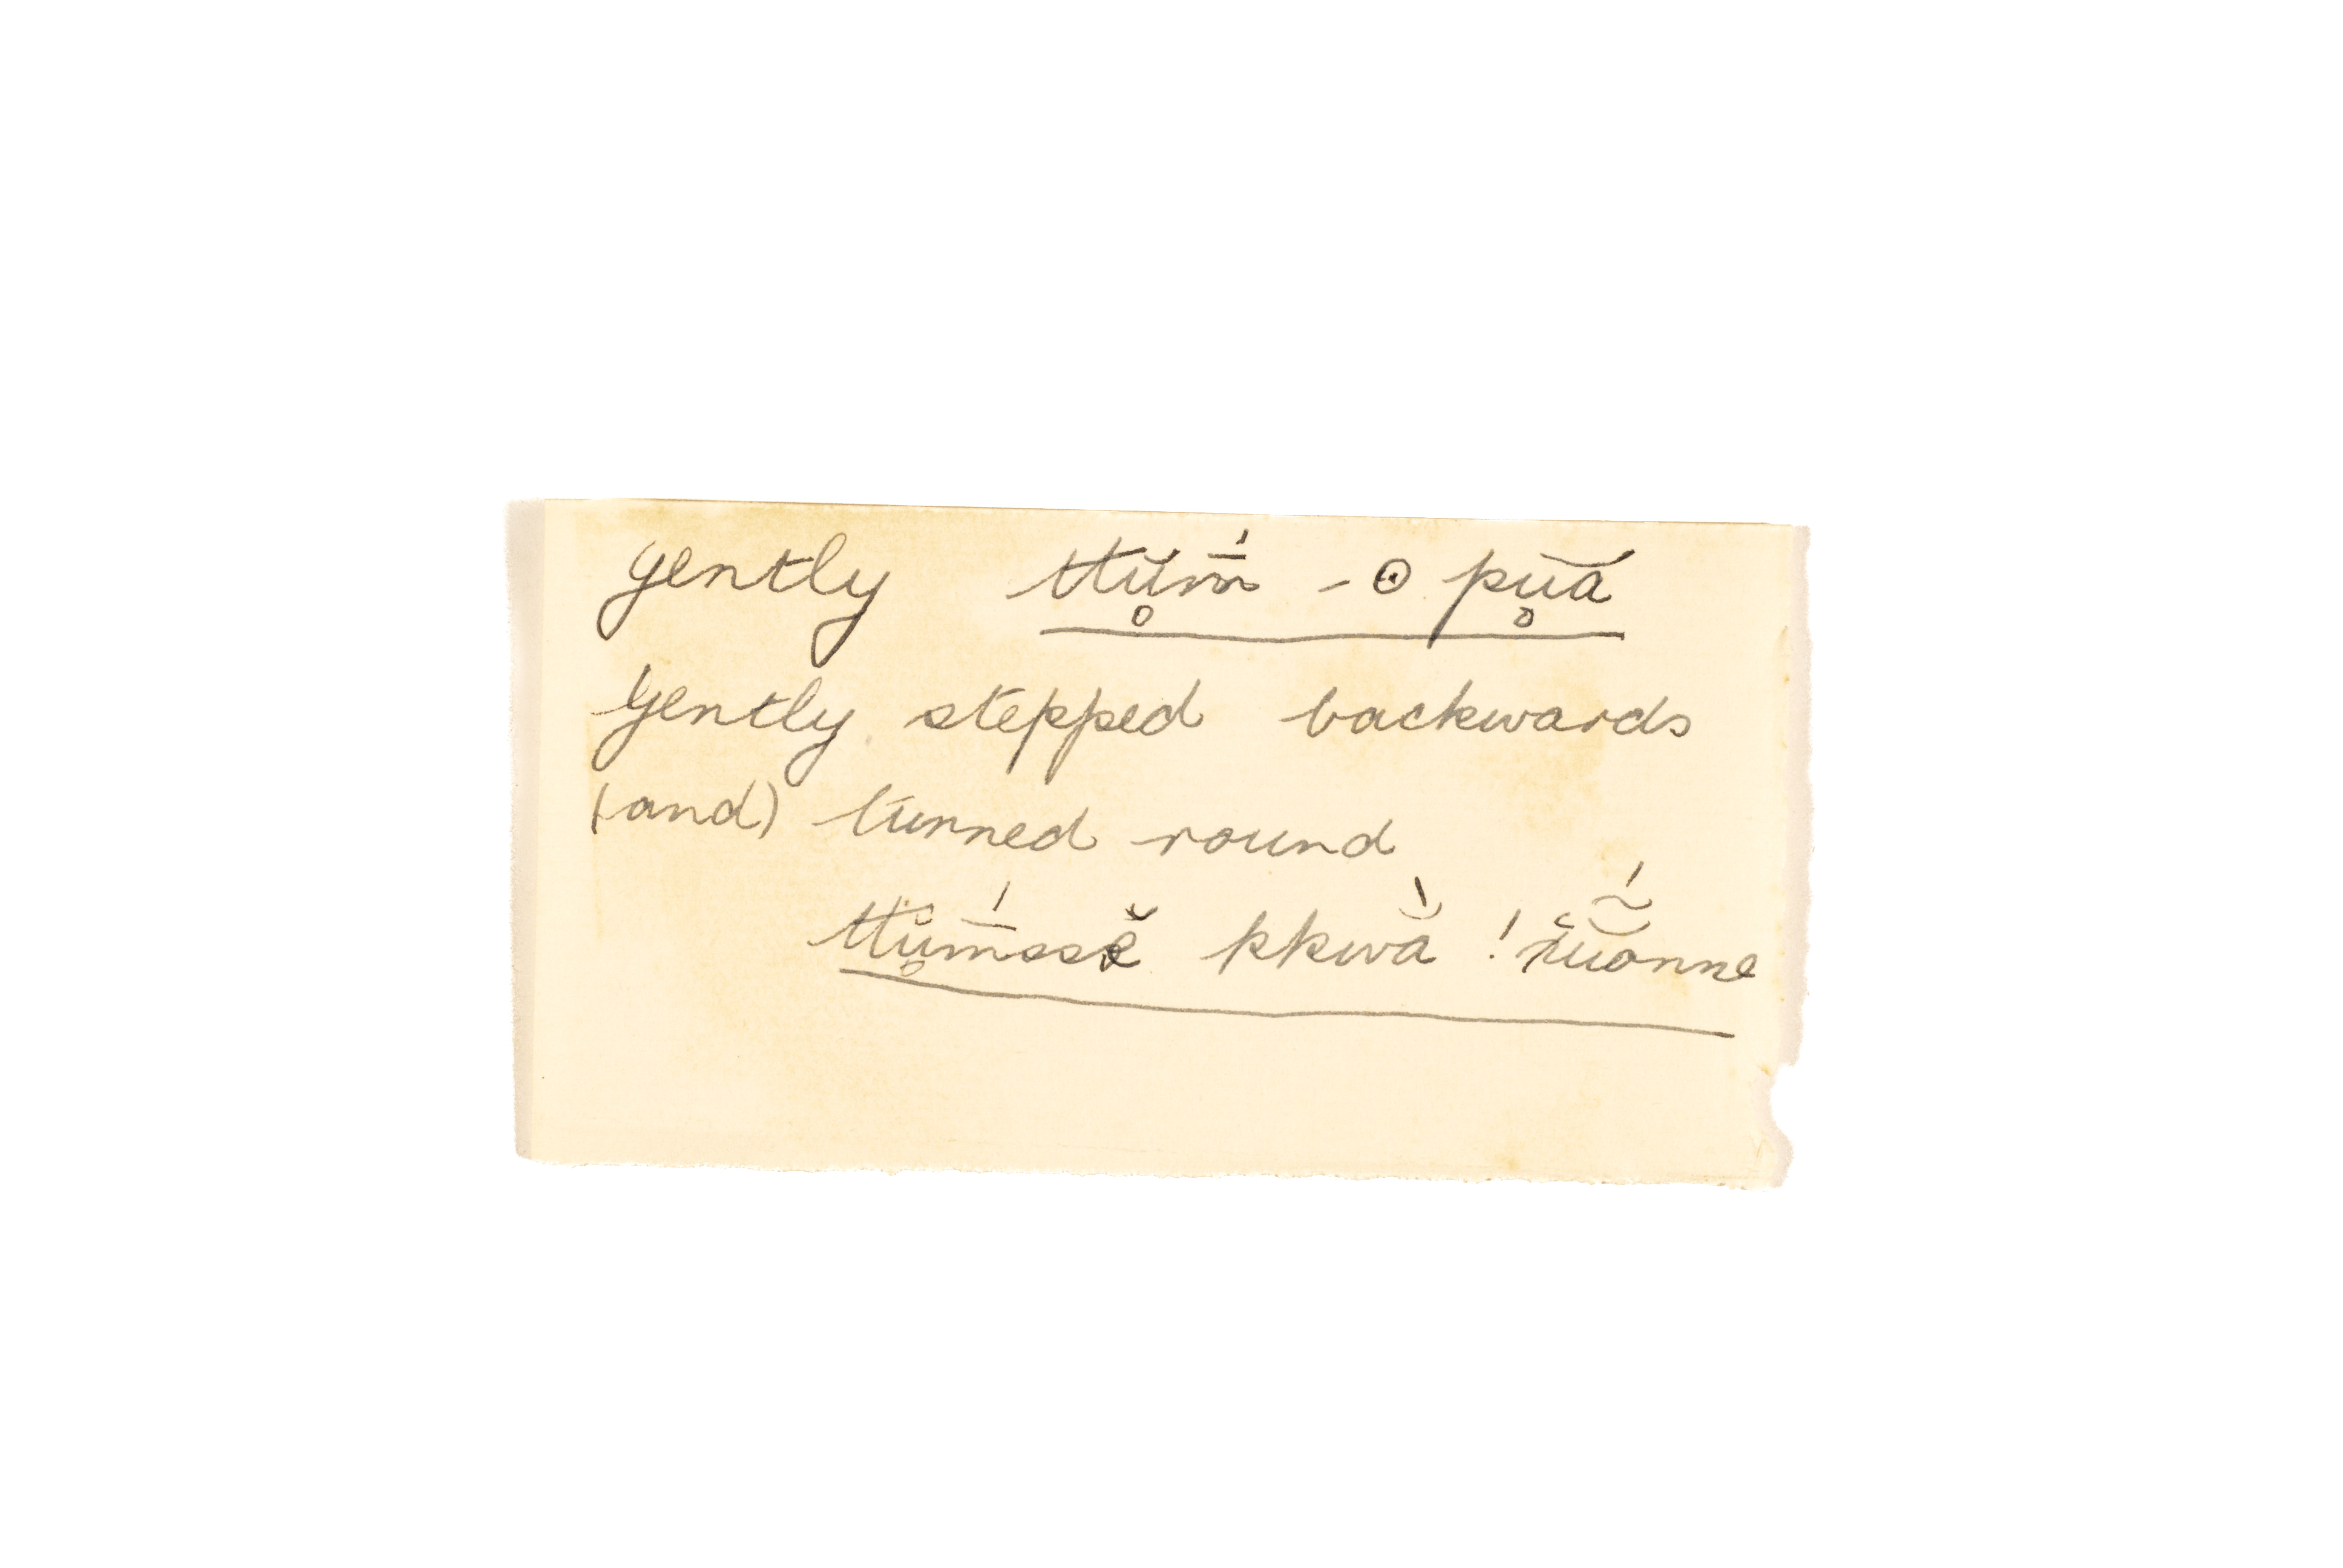 gently ttŭ̥m̄́ - ʘ pŭ̥ă
gently stepped backwards
(and) turned round
ttŭ̥m̄́ssĕ kkwằ !k̆ŭonne